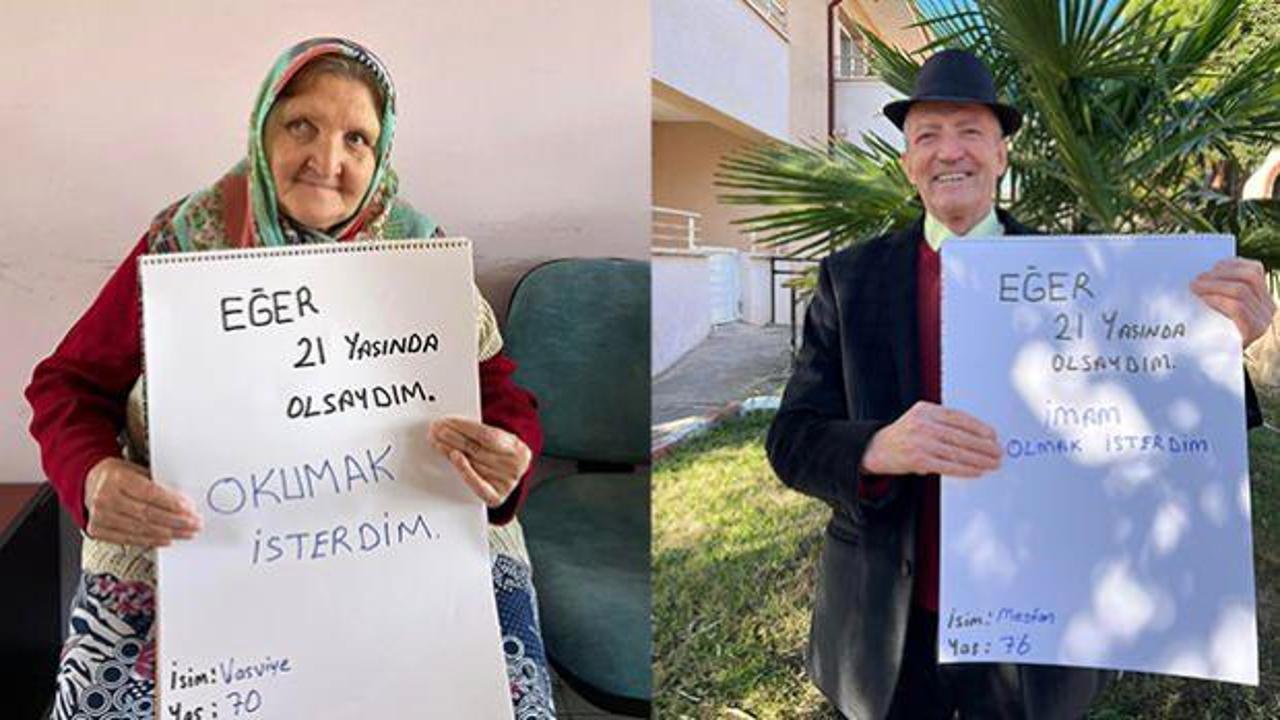 EĞER
21 YASINDA
OLSAYDIM.
OKUMAK
İSTERDİM.
İsim: Vasviye
Yaş: 70
EĞER
21 YASINDA
OLSAYDIM.
İMAM
OLMAK İSTERDİM
İsim: Mestan
Yaş: 76